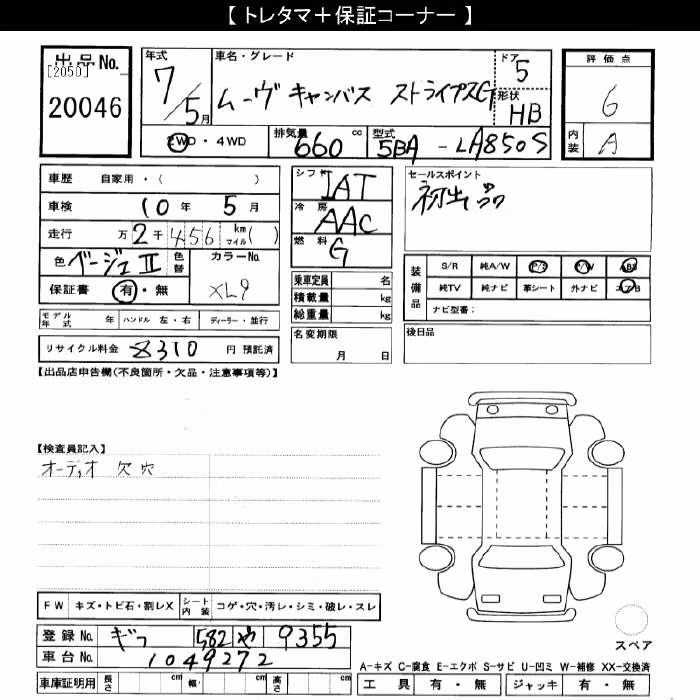 【 トレタマ＋保証コーナー 】
出品No.
[2050]
20046
年式 7/5月
車名・グレード
ムーヴ キャンバス ストライプスG
ドア 5
形状 HB
評価点 6
内装 A
2WD・4WD
排気量 660 cc
型式 5BA - LA850S
車歴 自家用・( )
車検 10年 5月
走行 万 2千 456 km マイル( )
色 ベージュII 色替
カラーNo. XL9
保証書 有・無
モデル年式 年 ハンドル 左・右 ディーラー・並行
リサイクル料金 8310 円 預託済
シフト IAT
冷房 AAC
燃料 G
乗車定員 名
積載量 kg
総重量 kg
名変期限
月 日
セールスポイント
初出品
装備品
S/R 純A/W P/S P/W ABS
純TV 純ナビ 革シート 外ナビ エアB
ナビ型番：
後日品
【出品店申告欄(不良箇所・欠品・注意事項等)】
【検査員記入】
オーディオ 欠 穴
FW キズ・トビ石・割レX シート内装 コゲ・穴・汚レ・シミ・破レ・スレ
登録No. ギフ 582 や 9355
車台No. 1049272
車庫証明用 長さ cm 幅 cm 高さ cm
スペア
A-キズ C-腐食 E-エクボ S-サビ U-凹ミ W-補修 XX-交換済
工具 有・無 ジャッキ 有・無